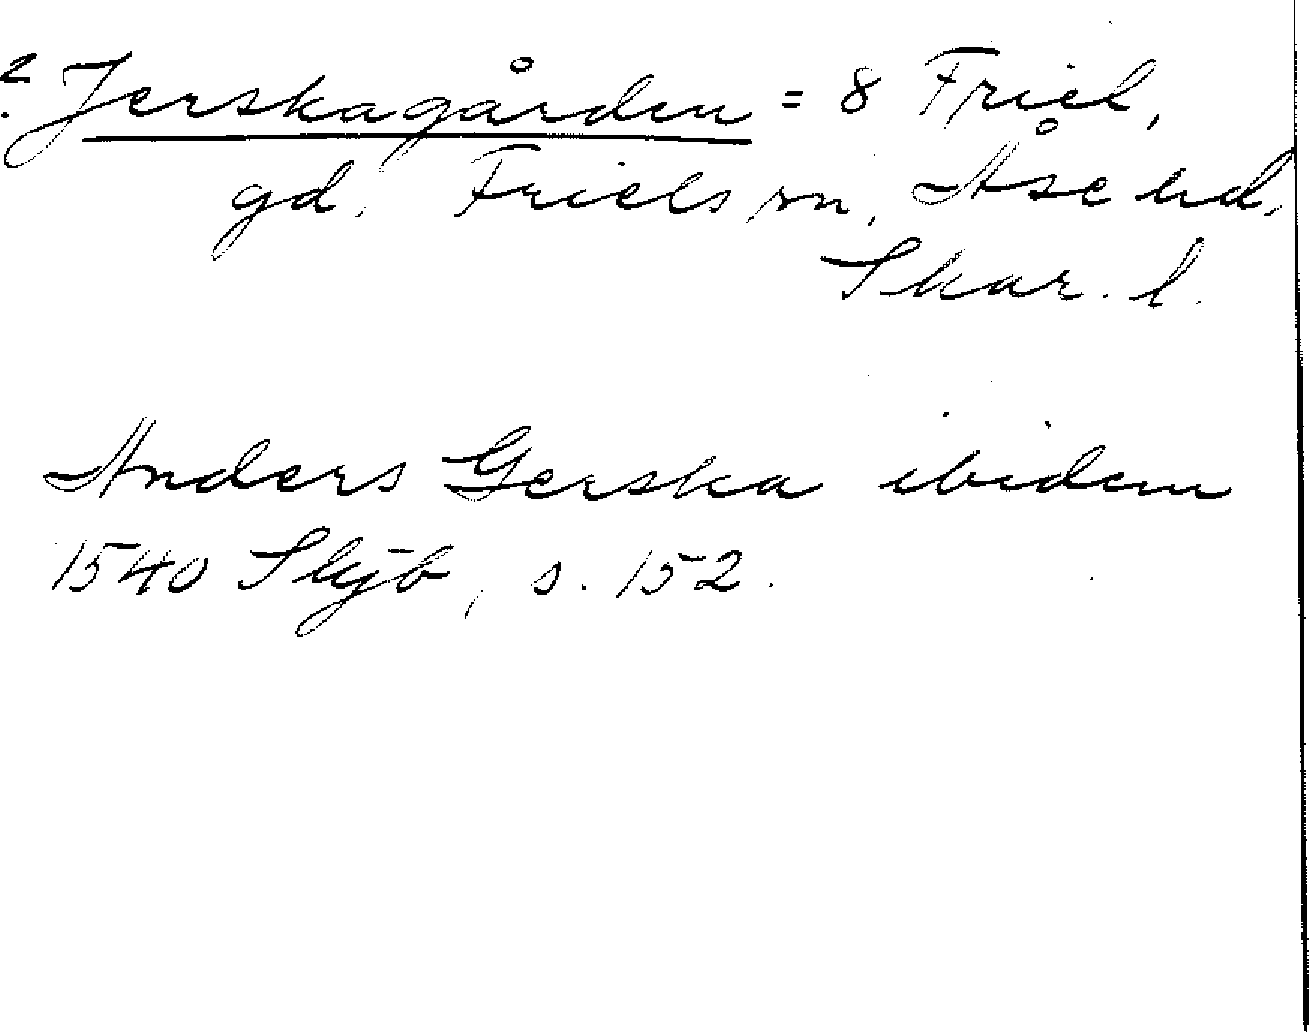 ? Jerskagården = 8 Friel,
gd. Friels sn, Åse hd,
Skar. l.
Anders Gerska ibidem
1540 Skjb, s. 152.